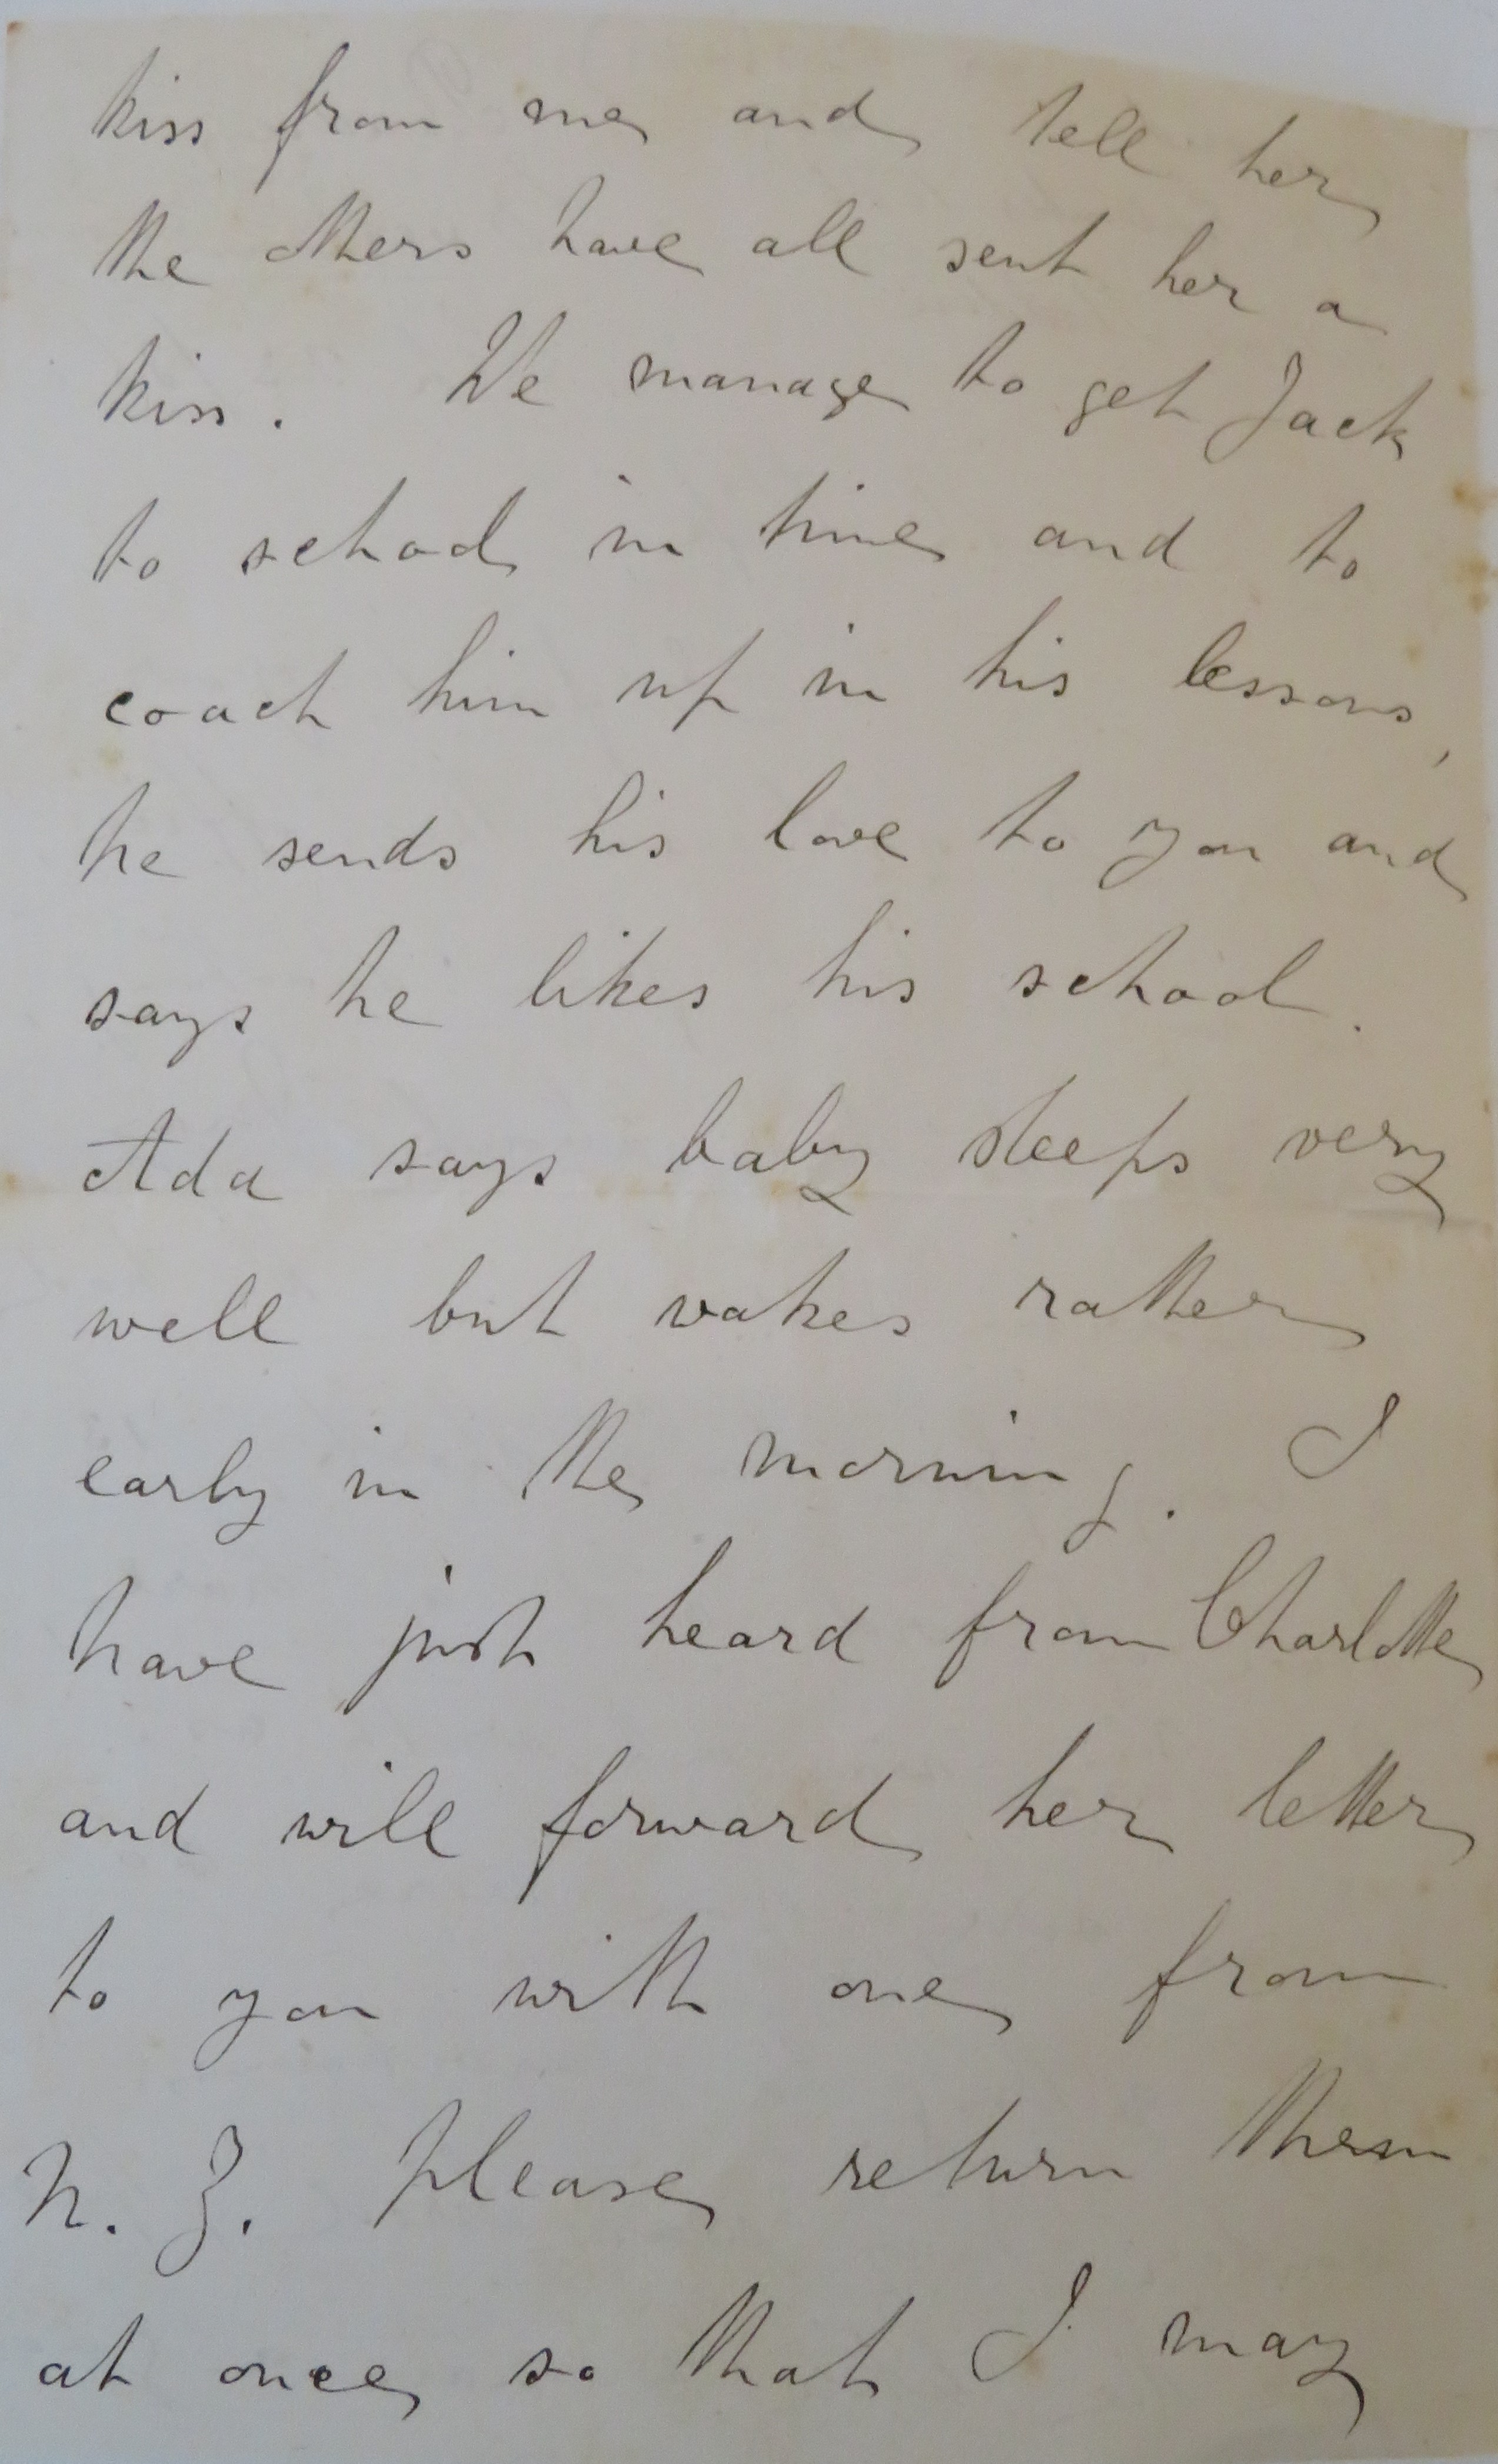 kiss from me and tell her
the others have all sent her a
kiss. We manage to get Jack
to school in time and to
coach him up in his lessons,
he sends his love to you and
says he likes his school.
Ada says baby sleeps very
well but wakes rather
early in the morning. I
have just heard from Charlotte
and will forward her letter
to you with one from
N. Z. Please return them
at once so that I may